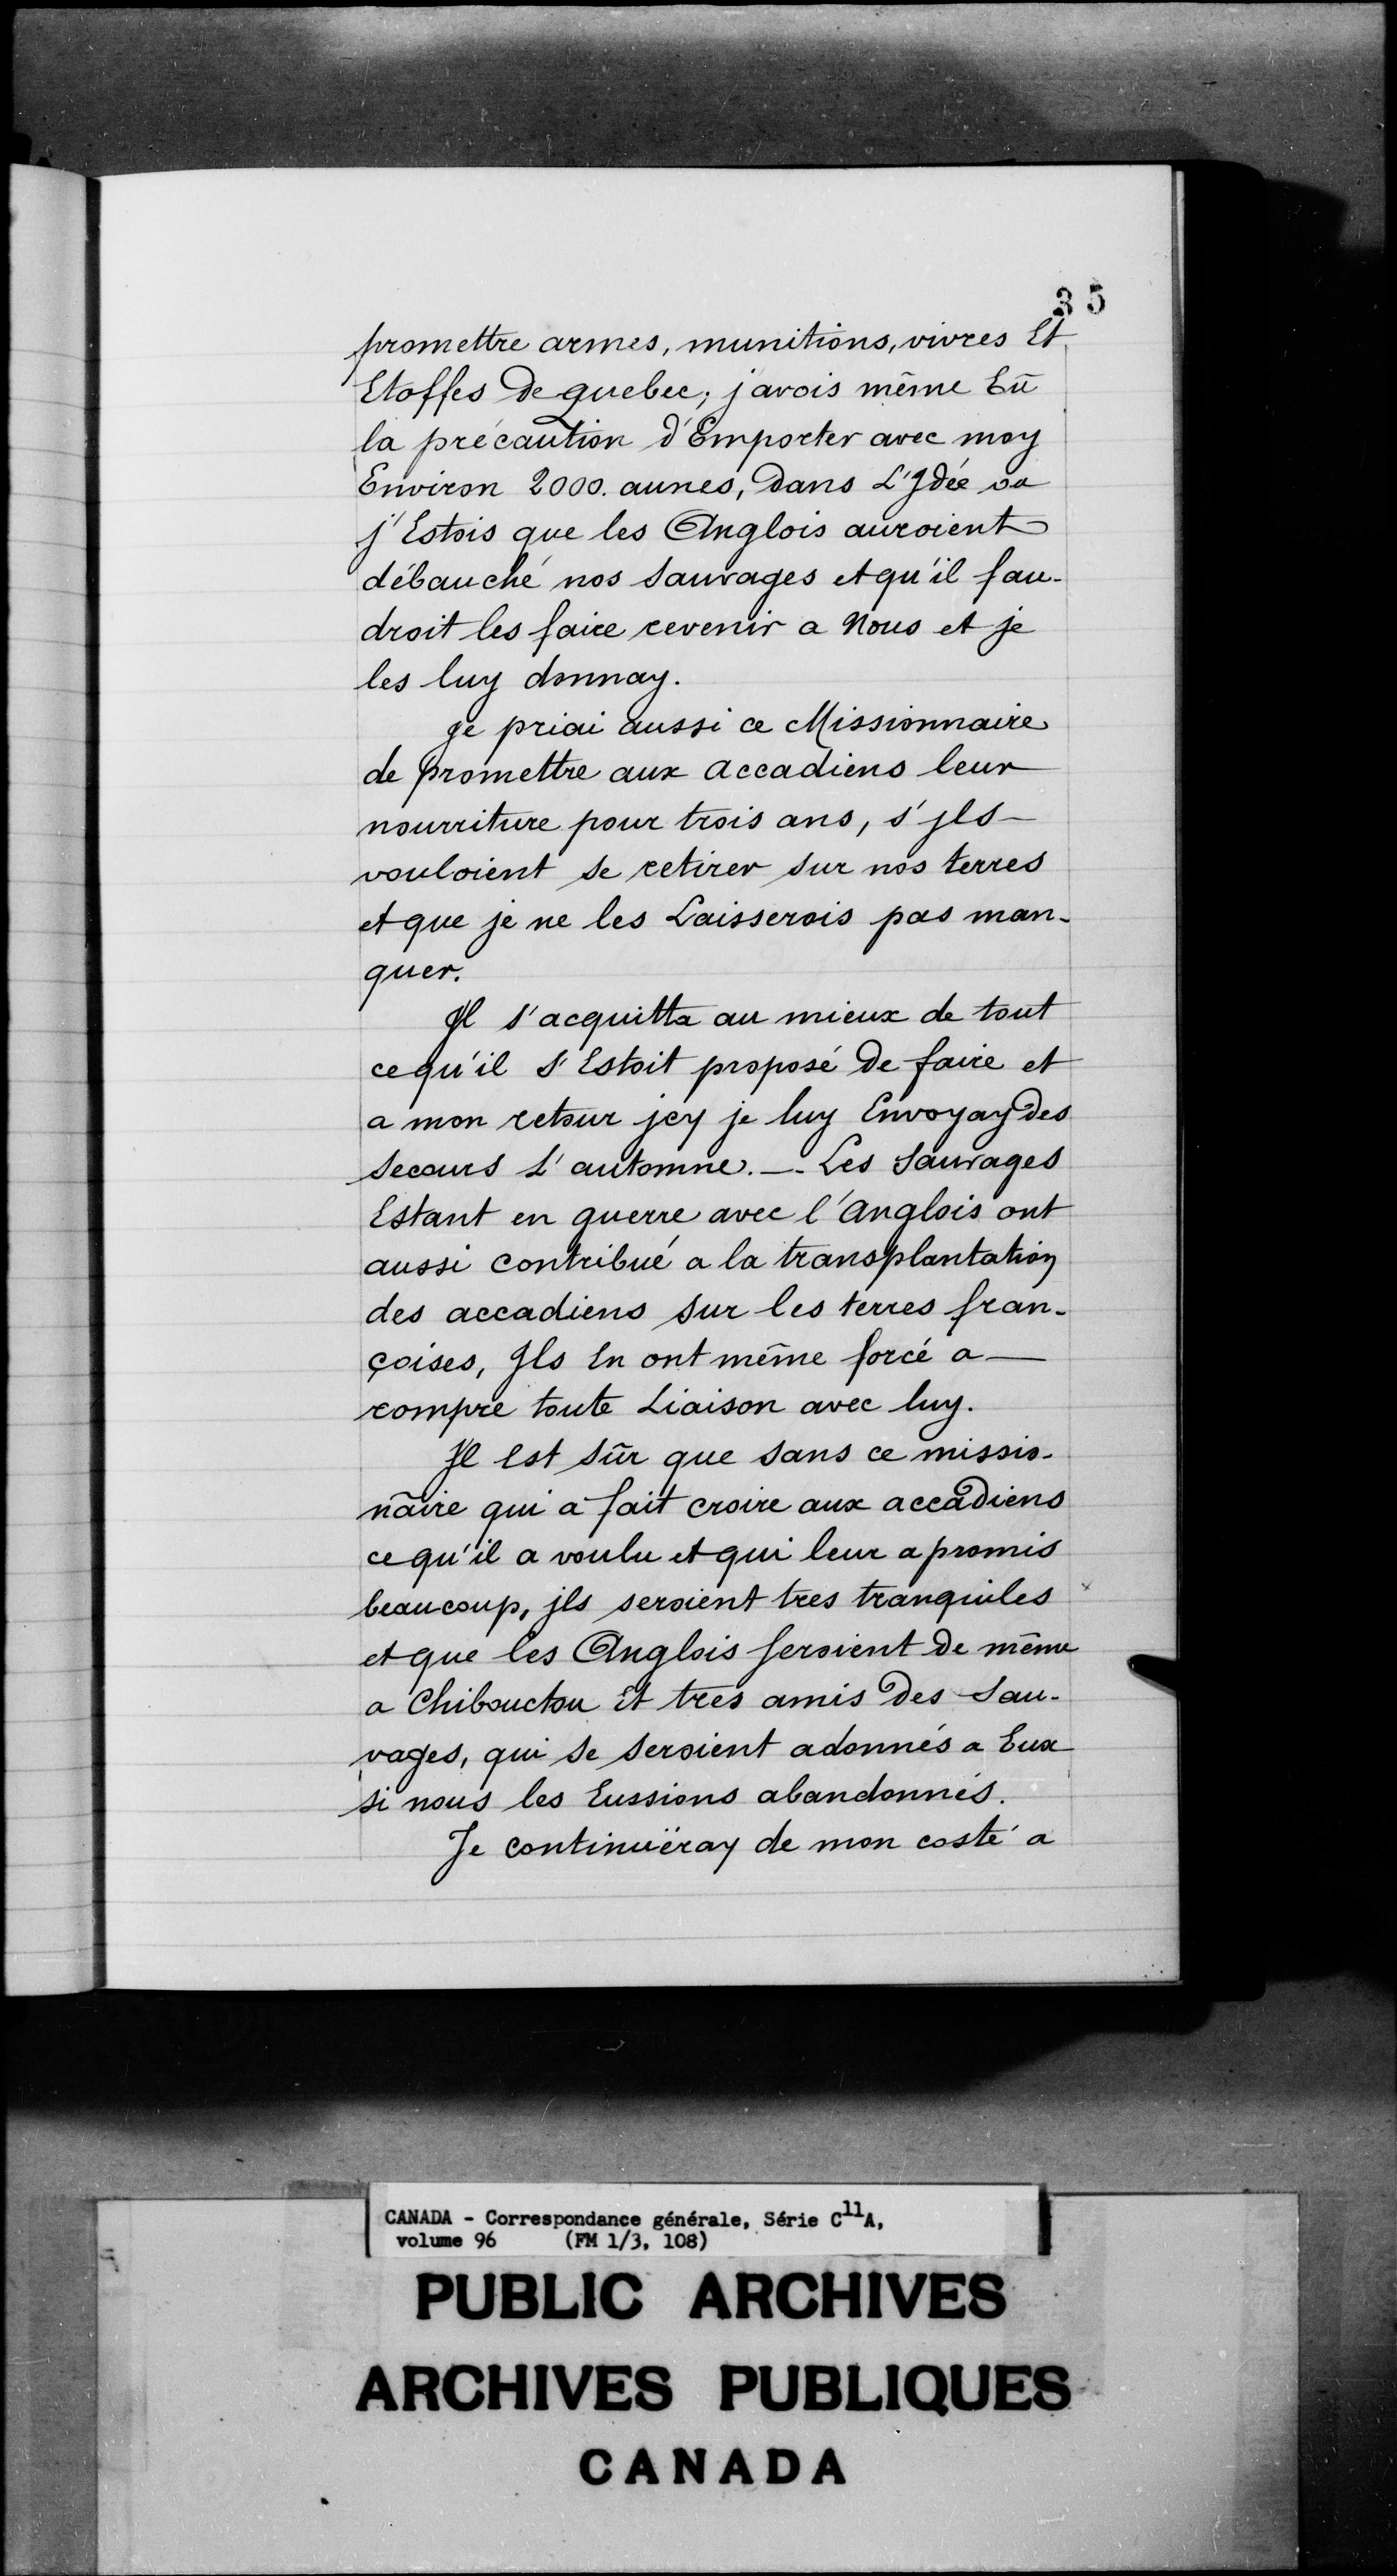 35
promettre armes, munitions, vivres Et
Etoffes de quebec; j'avois même Eû
la précaution d'Emporter avec moy
Environ 2000. aunes, dans L'Idée ou
j'Estois que les Anglois auroient
débauché nos sauvages et qu'il fau-
droit les faire revenir a Nous et je
les luy donnay.
je priai aussi ce Missionnaire
de promettre aux accadiens leur
nourriture pour trois ans, s'jls
vouloient se retirer sur nos terres
et que je ne les Laisserois pas man-
quer.
Jl s'acquitta au mieux de tout
ce qu'il s'Estoit proposé de faire et
a mon retour jcy je luy Envoyay des
secours L'automne. — Les Sauvages
Estant en guerre avec l'anglois ont
aussi contribué a la transplantation
des accadiens sur les terres fran-
çoises, Jls En ont même forcé a —
rompre toute Liaison avec luy.
Jl Est sûr que sans ce missio-
nāire qui a fait croire aux accadiens
ce qu'il a voulu et qui leur a promis
beaucoup, jls seroient tres tranquiles x
et que les Anglois seroient de même
a Chibouctou Et tres amis des Sau-
vages, qui se seroient adonnés a Eux
si nous les Eussions abandonnés.
Je continuëray de mon costé a
CANADA - Correspondance générale, Série C11A,
volume 96 (FM 1/3, 108)
PUBLIC ARCHIVES
ARCHIVES PUBLIQUES
CANADA